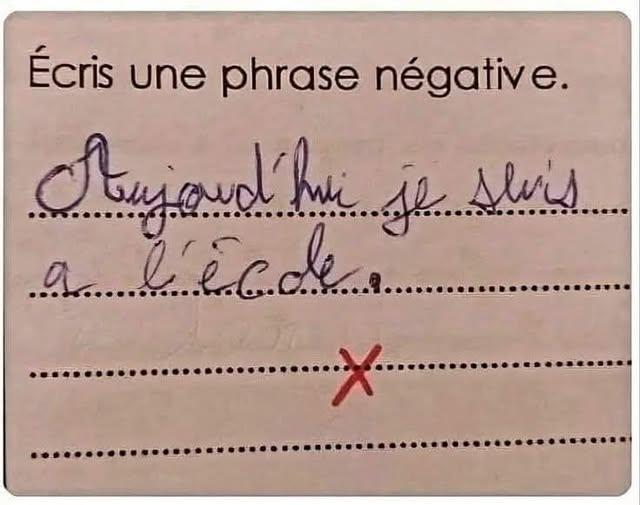 Écris une phrase négative.
Aujourd'hui je suis
a l'école.